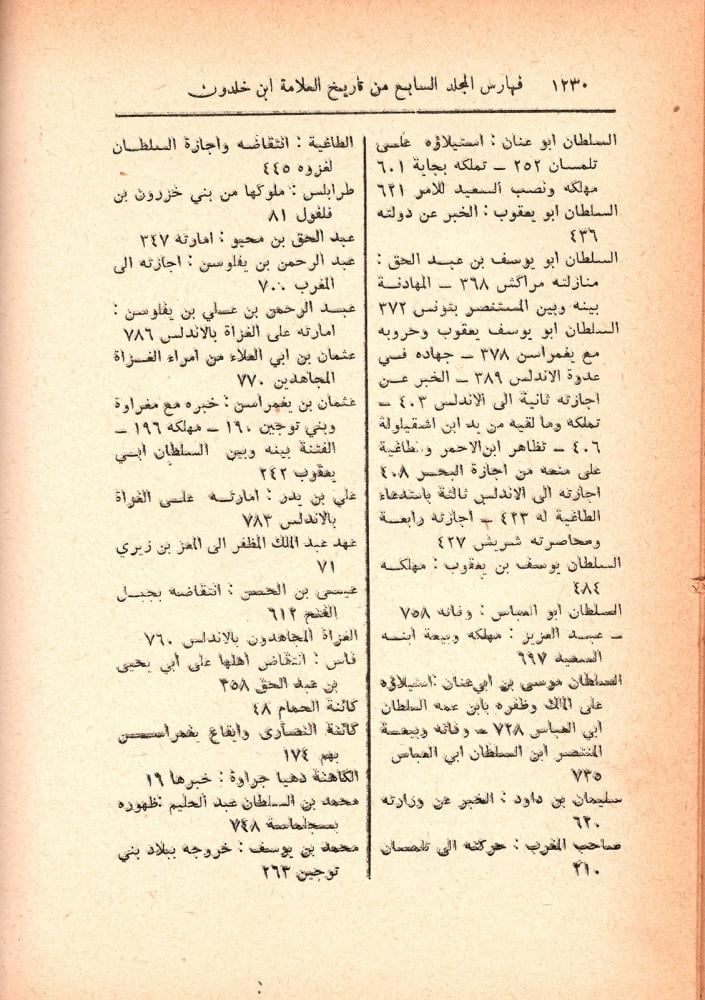 ١٢٣٠ فهارس المجلد السابع من تاريخ العلامة ابن خلدون
السلطان ابو عنان : استيلاؤه على
تلمسان ٢٥٢ ـ تملكه بجاية ٦٠١
مهلكه ونصب السعيد للامر ٦٢١
السلطان ابو يعقوب : الخبر عن دولته
٤٣٦
السلطان ابو يوسف بن عبد الحق :
منازلته مراكش ٣٦٨ ـ المهادنة
بينه وبين المستنصر بتونس ٣٧٢
السلطان ابو يوسف يعقوب وحروبه
مع يغمراسن ٣٧٨ ـ جهاده في
عدوة الاندلس ٣٨٩ ـ الخبر عن
اجازته ثانية الى الاندلس ٤٠٣ ـ
تملكه وما لقيه من يد ابن اشقيلولة
٤٠٦ ـ تظاهر ابن الاحمر والطاغية
على منعه من اجازة البحر ٤٠٨
اجازته الى الاندلس ثالثة باستدعاء
الطاغية له ٤٢٣ ـ اجازته رابعة
ومحاصرته شريش ٤٢٧
السلطان يوسف بن يعقوب : مهلكه
٤٨٤
السلطان ابو العباس : وفاته ٧٥٨
ـ عبد العزيز : مهلكه وبيعة ابنه
السعيد ٦٩٧
السلطان موسى بن ابي عنان : استيلاؤه
على الملك وظفره بابن عمه السلطان
ابي العباس ٧٢٨ ـ وفاته وبيعة
المنتصر ابن السلطان ابي العباس
٧٣٥
سليمان بن داود : الخبر عن وزارته
٦٢٠
صاحب المغرب : حركته الى تلمسان
٢١٠
الطاغية : انتقاضه واجازة السلطان
لغزوه ٤٤٥
طرابلس : ملوكها من بني خزرون بن
فلفول ٨١
عبد الحق بن محيو : امارته ٣٤٧
عبد الرحمن بن يفلوسن : اجازته الى
المغرب ٧٠٠
عبد الرحمن بن علي بن يفلوسن :
امارته على الغزاة بالاندلس ٧٨٦
عثمان بن ابي العلاء من امراء الغزاة
المجاهدين ٧٧٠
عثمان بن يغمراسن : خبره مع مغراوة
وبني توجين ١٩٠ ـ مهلكه ١٩٦ ـ
الفتنة بينه وبين السلطان ابي
يعقوب ٢٤٢
علي بن بدر : امارته على الغزاة
بالاندلس ٧٨٣
عهد عبد الملك المظفر الى المعز بن زيري
٧١
عيسى بن الحسن : انتقاضه بجبل
الفتح ٦١٢
الغزاة المجاهدون بالاندلس ٧٦٠
فاس : انتقاض اهلها على ابي يحيى
بن عبد الحق ٣٥٨
كائنة الحمام ٤٨
كائنة النصارى وايقاع يغمراسن
بهم ١٧٤
الكاهنة دهيا جراوة : خبرها ١٩
محمد بن السلطان عبد الحليم : ظهوره
بسجلماسة ٧٤٨
محمد بن يوسف : خروجه ببلاد بني
توجين ٢٦٣